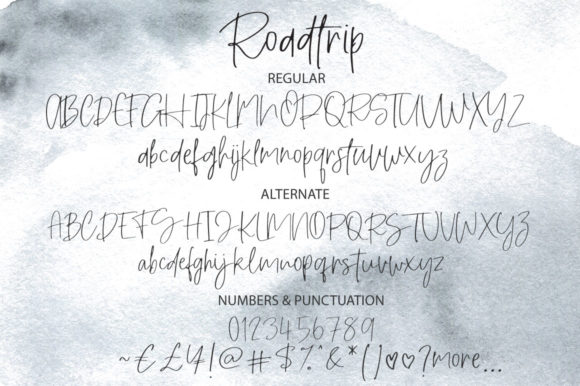 Roadtrip
REGULAR
ABCDEFGHIJKLMNOPQRSTUVWXYZ
abcdefghijklmnopqrstuvwxyz
ALTERNATE
ABCDEFGHIJKLMNOPQRSTUVWXYZ
abcdefghijklmnopqrstuvwxyz
NUMBERS & PUNCTUATION
0123456789
~€£¥!@#$%^&*()♡♡?more...